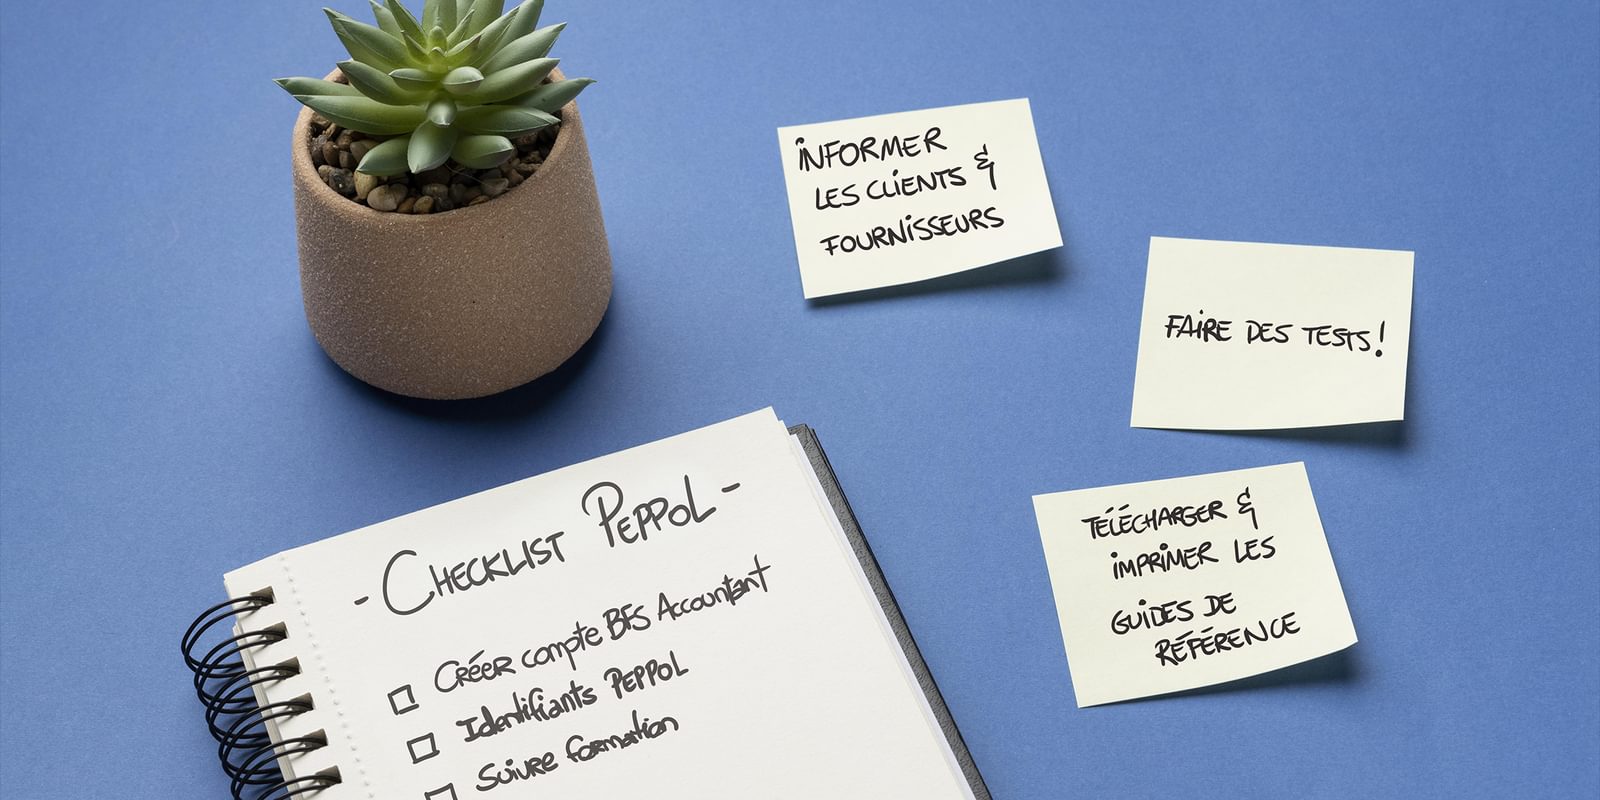 INFORMER
LES CLIENTS &
FOURNISSEURS
FAIRE DES TESTS!
TÉLÉCHARGER &
IMPRIMER LES
GUIDES DE
RÉFÉRENCE
- CHECKLIST PEPPOL -
CRÉER compte BFS Accountant
Identifiants PEPPOL
SUIVRE formation